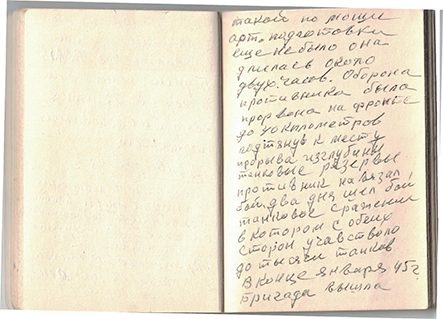 такой по мощи
арт. подготовки
еще небыло она
длилась около
двух часов. Оборона
противника была
прорвана на фронте
до 40 километров
подтянув к месту
прорыва изглубины
танковые резервы
противник навязал
бой, два дня шел бой
танковое сражении
в котором с обеих
сторон учавствало
до тысячи танков
В конце января 45 г.
бригада вышла